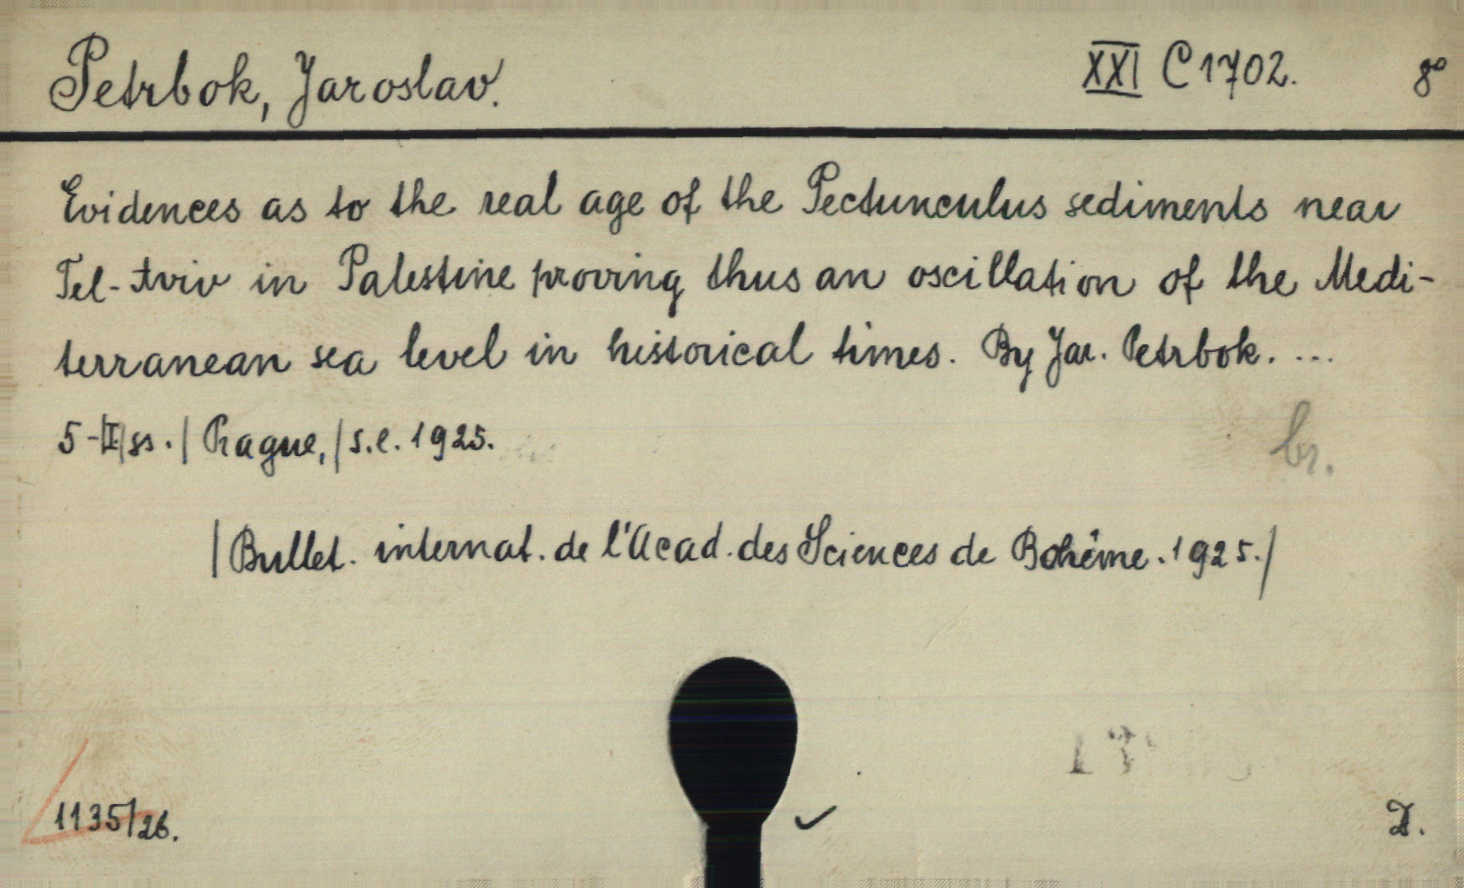 Petrbok, Jaroslav. XXI C 1702. 8°
Evidences as to the real age of the Pectunculus sediments near
Tel-Aviv in Palestine proving thus an oscillation of the Medi-
terranean sea level in historical times. By Jar. Petrbok. ...
5-|II|ss.| Prague,| s.e. 1925.
br.
|Bullet. internat. de l'Acad. des Sciences de Bohême. 1925.|
17
1135/26.